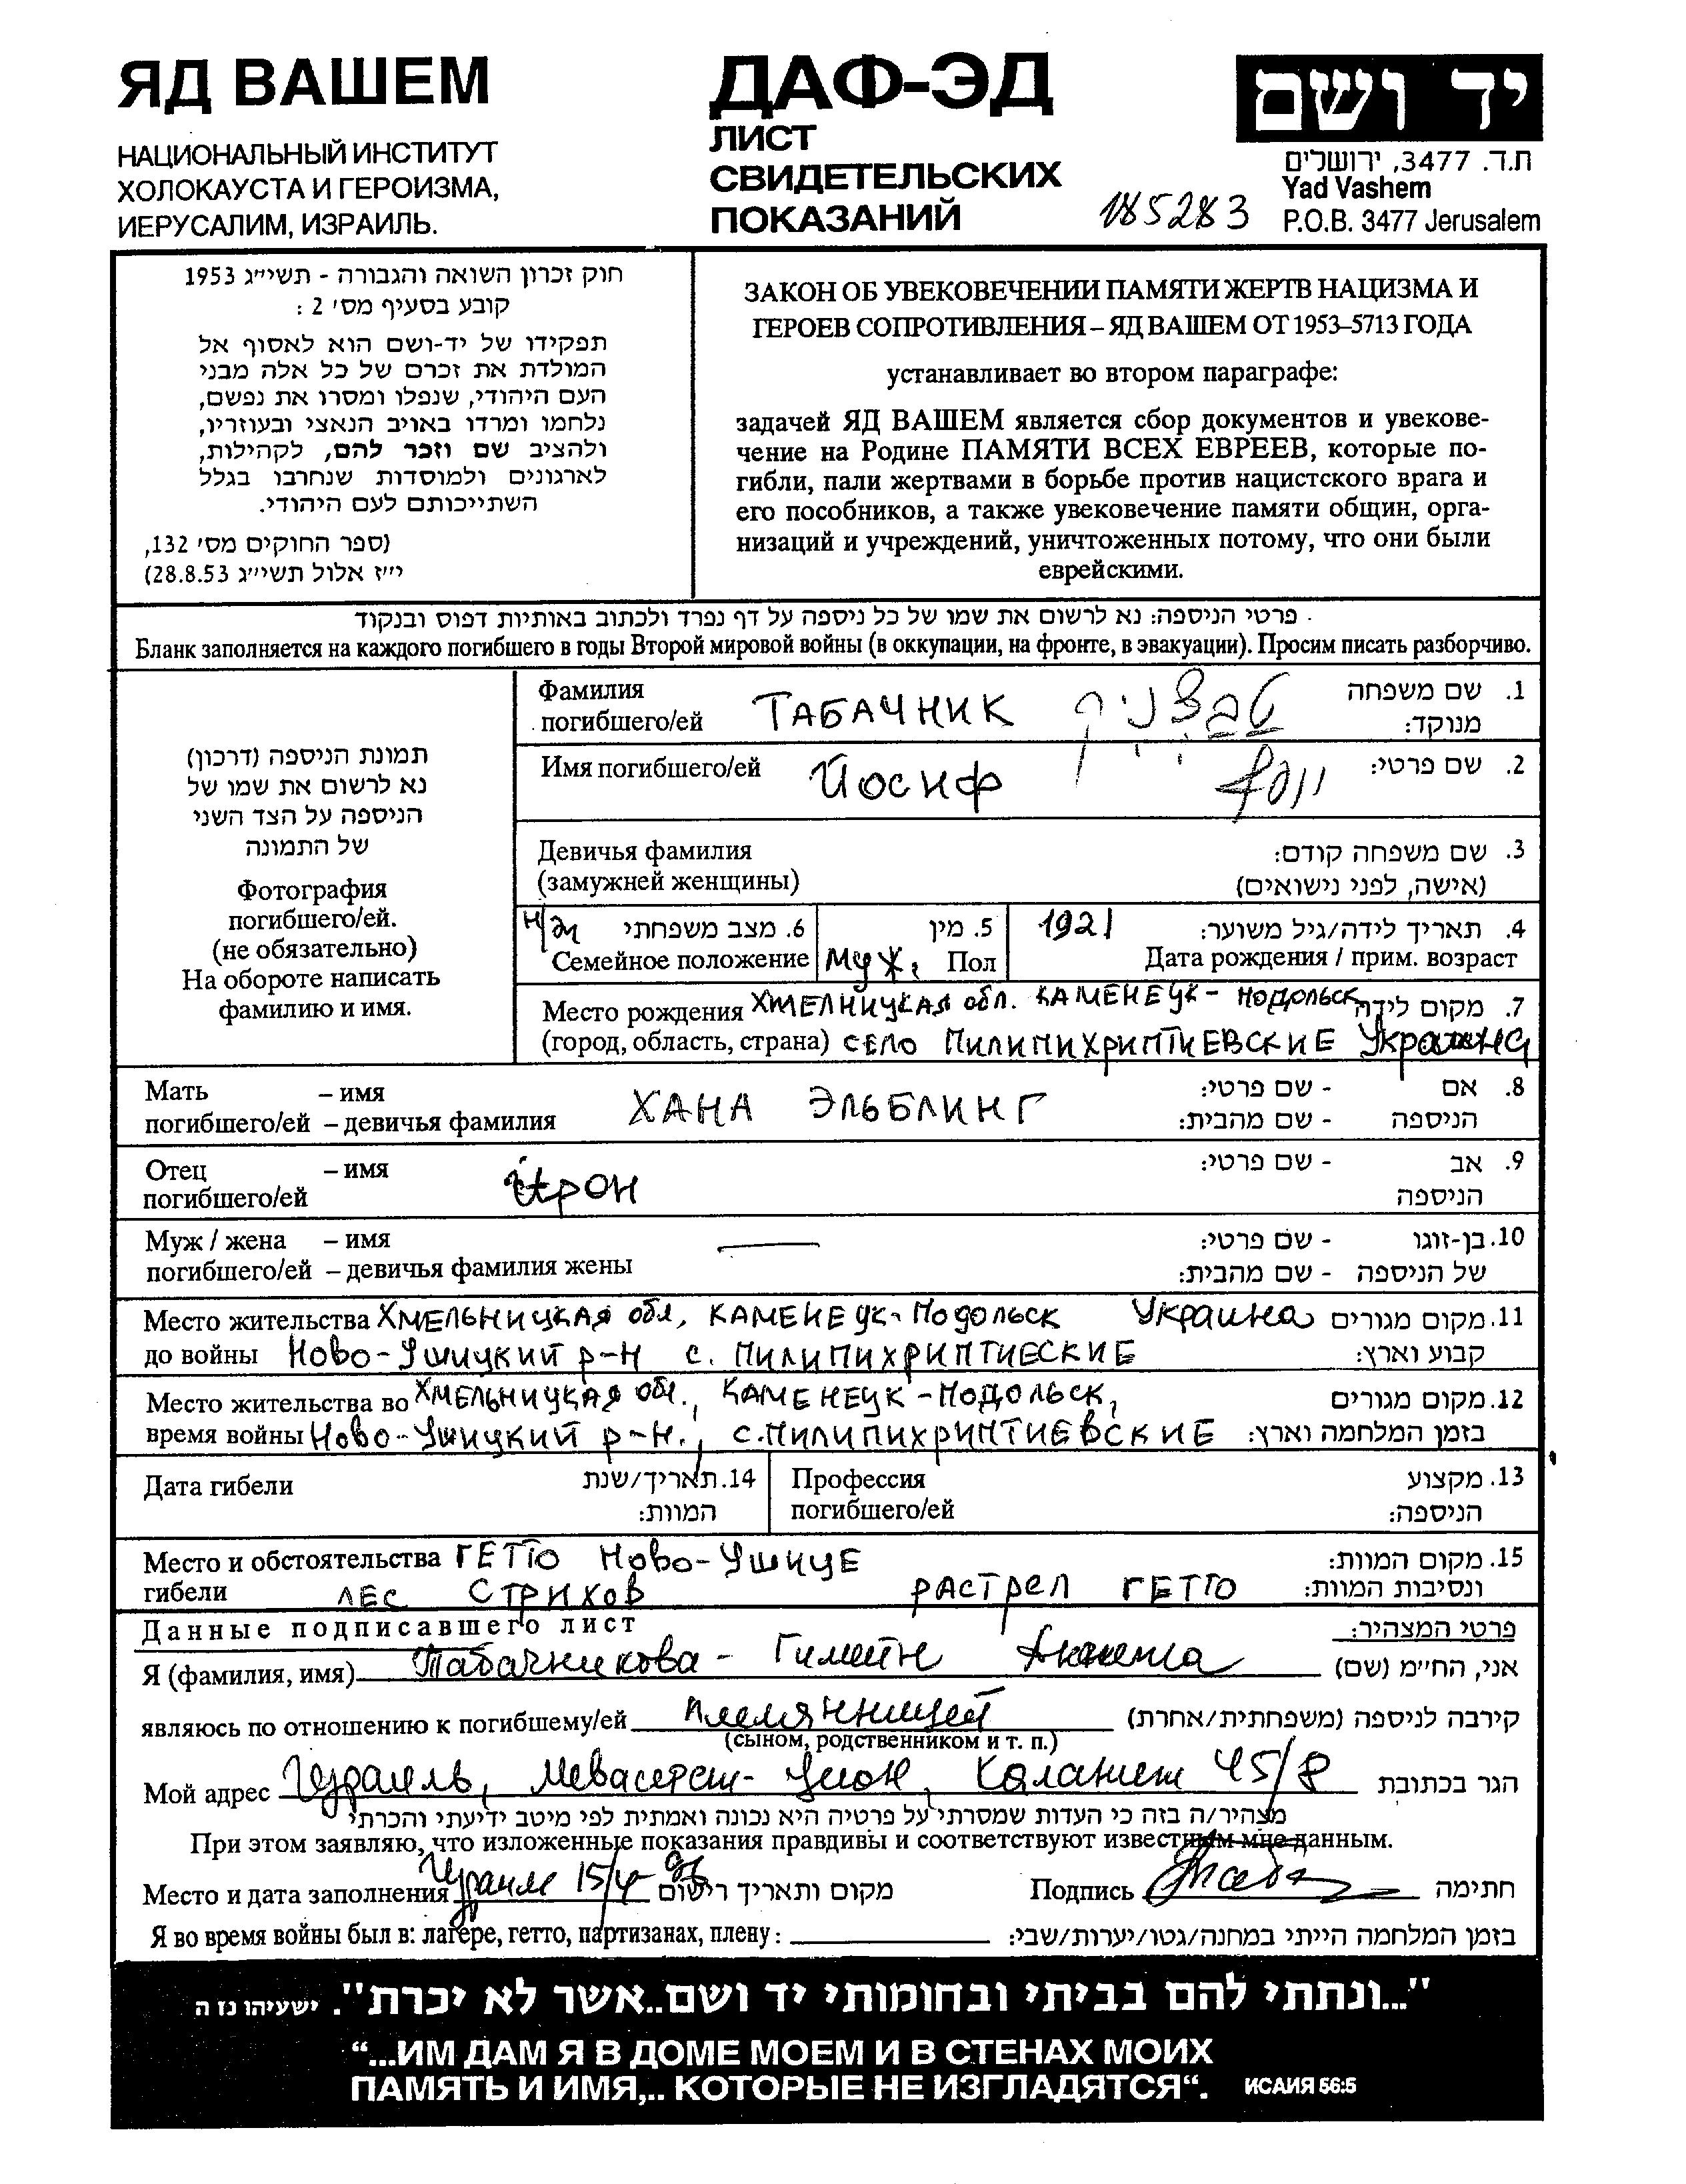 ЯД ВАШЕМ
НАЦИОНАЛЬНЫЙ ИНСТИТУТ
ХОЛОКАУСТА И ГЕРОИЗМА,
ИЕРУСАЛИМ, ИЗРАИЛЬ.
ДАФ-ЭД
ЛИСТ
СВИДЕТЕЛЬСКИХ
ПОКАЗАНИЙ
185283
יד ושם
ת.ד. 3477, ירושלים
Yad Vashem
P.O.B. 3477 Jerusalem
חוק זכרון השואה והגבורה - תשי״ג 1953
קובע בסעיף מס׳ 2 :
תפקידו של יד-ושם הוא לאסוף אל
המולדת את זכרם של כל אלה מבני
העם היהודי, שנפלו ומסרו את נפשם,
נלחמו ומרדו באויב הנאצי ובעוזריו,
ולהציב שם וזכר להם, לקהילות,
לארגונים ולמוסדות שנחרבו בגלל
השתייכותם לעם היהודי.
(ספר החוקים מס׳ 132,
י״ז אלול תשי״ג 28.8.53)
ЗАКОН ОБ УВЕКОВЕЧЕНИИ ПАМЯТИ ЖЕРТВ НАЦИЗМА И
ГЕРОЕВ СОПРОТИВЛЕНИЯ – ЯД ВАШЕМ ОТ 1953–5713 ГОДА
устанавливает во втором параграфе:
задачей ЯД ВАШЕМ является сбор документов и увекове-
чение на Родине ПАМЯТИ ВСЕХ ЕВРЕЕВ, которые по-
гибли, пали жертвами в борьбе против нацистского врага и
его пособников, а также увековечение памяти общин, орга-
низаций и учреждений, уничтоженных потому, что они были
еврейскими.
פרטי הניספה: נא לרשום את שמו של כל ניספה על דף נפרד ולכתוב באותיות דפוס ובנקוד
Бланк заполняется на каждого погибшего в годы Второй мировой войны (в оккупации, на фронте, в эвакуации). Просим писать разборчиво.
תמונת הניספה (דרכון)
נא לרשום את שמו של
הניספה על הצד השני
של התמונה
Фотография
погибшего/ей.
(не обязательно)
На обороте написать
фамилию и имя.
Фамилия ТАБАЧНИК טבצניק 1. שם משפחה
погибшего/ей מנוקד:
Имя погибшего/ей Йосиф יוסף 2. שם פרטי:
Девичья фамилия 3. שם משפחה קודם:
(замужней женщины) (אישה, לפני נישואים)
6. מצב משפחתי 5. מין 1921 4. תאריך לידה/גיל משוער:
Семейное положение муж. Пол Дата рождения / прим. возраст
Место рождения ХМЕЛНИЦКАЯ обл. КАМЕНЕЦК-ПОДОЛЬСК 7. מקום לידה
(город, область, страна) СЕЛО ПИЛИПИХРИПТИЕВСКИЕ Украина
Мать – имя ХАНА ЭЛЬБЛИНГ 8. אם - שם פרטי:
погибшего/ей – девичья фамилия הניספה - שם מהבית:
Отец – имя 9. אב - שם פרטי:
погибшего/ей הניספה
Муж / жена – имя — 10. בן-זוגו - שם פרטי:
погибшего/ей – девичья фамилия жены של הניספה - שם מהבית:
Место жительства ХМЕЛЬНИЦКАЯ обл, КАМЕНЕЦК-Подольск Украина 11. מקום מגורים
до войны Ново-Ушицкий р-н с. ПИЛИПИХРИПТИЕСКИЕ קבוע וארץ:
Место жительства во ХМЕЛЬНИЦКАЯ обл., КАМЕНЕЦК-ПОДОЛЬСК, 12. מקום מגורים
время войны Ново-Ушицкий р-н., с.ПИЛИПИХРИПТИЕВСКИЕ בזמן המלחמה וארץ:
Дата гибели 14. תאריך/שנת המוות: Профессия погибшего/ей 13. מקצוע הניספה:
Место и обстоятельства ГЕТТО Ново-УШИЦЕ 15. מקום המוות:
гибели ЛЕС СТРИХОВ РАСТРЕЛ ГЕТТО ונסיבות המוות:
Данные подписавшего лист פרטי המצהיר:
Я (фамилия, имя) Табачникова- אני, הח״מ (שם)
являюсь по отношению к погибшему/ей племянницей קירבה לניספה (משפחתית/אחרת)
(сыном, родственником и т. п.)
Мой адрес Израиль, Мевасерет-Цион, Каланиет 45/8 הגר בכתובת
מצהיר/ה בזה כי העדות שמסרתי על פרטיה היא נכונה ואמתית לפי מיטב ידיעתי והכרתי
При этом заявляю, что изложенные показания правдивы и соответствуют известным мне данным.
Место и дата заполнения 15/ מקום ותאריך רישום Подпись חתימה
Я во время войны был в: лагере, гетто, партизанах, плену: בזמן המלחמה הייתי במחנה/גטו/יערות/שבי:
"...ונתתי להם בביתי ובחומותי יד ושם..אשר לא יכרת". ישעיהו נז ה
“...ИМ ДАМ Я В ДОМЕ МОЕМ И В СТЕНАХ МОИХ
ПАМЯТЬ И ИМЯ,.. КОТОРЫЕ НЕ ИЗГЛАДЯТСЯ“. ИСАИЯ 56:5